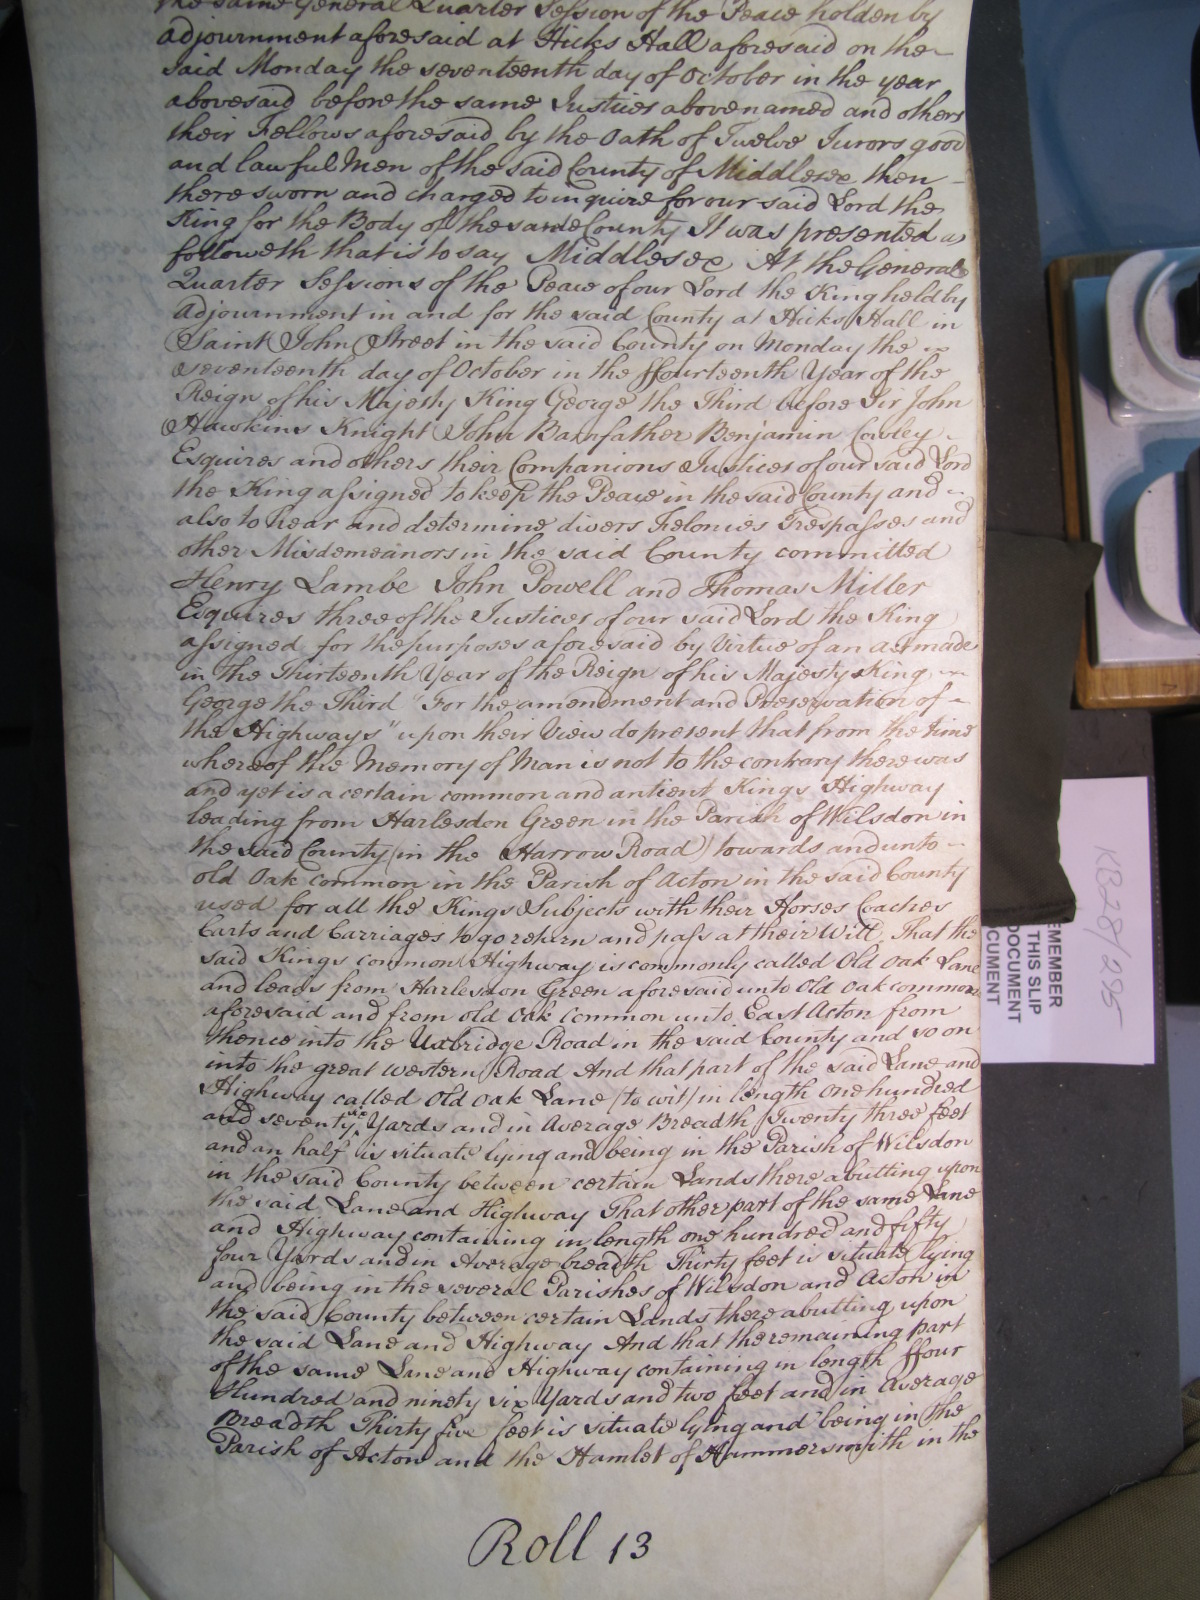 the same General Quarter Session of the Peace holden by
adjournment aforesaid at Hicks Hall aforesaid on the
said Monday the seventeenth day of October in the year
abovesaid before the same Justices abovenamed and others
their Fellows aforesaid by the Oath of Twelve Jurors good
and lawful Men of the said County of Middlesex then
there sworn and charged to inquire for our said Lord the
King for the Body of the same County It was presented as
followeth that is to say Middlesex At the General
Quarter Sessions of the Peace of our Lord the King held by
adjournment in and for the said County at Hicks Hall in
Saint John Street in the said County on Monday the
seventeenth day of October in the ffourteenth Year of the
Reign of his Majesty King George the Third before Sir John
Hawkins Knight John Barnfather Benjamin Cowley
Esquires and others their Companions Justices of our said Lord
the King assigned to keep the Peace in the said County and
also to hear and determine divers Felonies Trespasses and
other Misdemeanors in the said County committed
Henry Lambe John Powell and Thomas Miller
Esquires three of the Justices of our said Lord the King
assigned for the purposes aforesaid by Virtue of an act made
in the Thirteenth Year of the Reign of his Majesty King
George the Third "For the amendment and Preservation of
the Highways" upon their View do present that from the time
whereof the Memory of Man is not to the contrary there was
and yet is a certain common and antient Kings Highway
leading from Harlesdon Green in the Parish of Wilsdon in
the said County (in the Harrow Road) towards and unto
old Oak common in the Parish of Acton in the said County
used for all the Kings Subjects with their Horses Coaches
Carts and Carriages to go return and pass at their Will That the
said Kings common Highway is commonly called Old Oak Lane
and leads from Harlesdon Green aforesaid unto Old Oak common
aforesaid and from old Oak Common unto East Acton from
thence into the Uxbridge Road in the said County and so on
into the great western Road And that part of the said Lane and
Highway called Old Oak Lane (to wit) in length one hundred
and seventy six Yards and in Average Breadth Twenty three feet
and an half is situate lying and being in the Parish of Wilsdon
in the said County between certain Lands there abutting upon
the said Lane and Highway That other part of the same Lane
and Highway containing in length one hundred and fifty
four Yards and in Average breadth Thirty feet is situate lying
and being in the several Parishes of Wilsdon and Acton in
the said County between certain Lands there abutting upon
the said Lane and Highway And that the remaining part
of the same Lane and Highway containing in length ffour
Hundred and ninety six Yards and two feet and in average
Breadth Thirty five feet is situate lying and being in the
Parish of Acton and the Hamlet of Hammersmith in the
Roll 13
KB28/295
EMEMBER
THIS SLIP
DOCUMENT
CUMENT